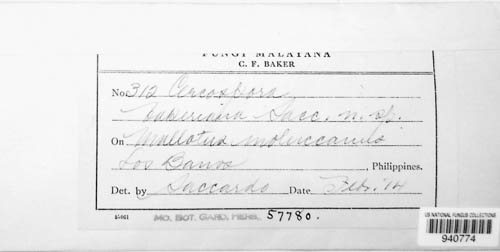 FUNGI MALAYANA
C. F. BAKER
No. 312 Cercospora
Bakeriana Sacc. n. sp.
On Mallotus moluccanus
Los Banos, Philippines.
Det. by Saccardo Date Feb. '14
15461 MO. BOT. GARD. HERB. 57780.
US NATIONAL FUNGUS COLLECTIONS
940774